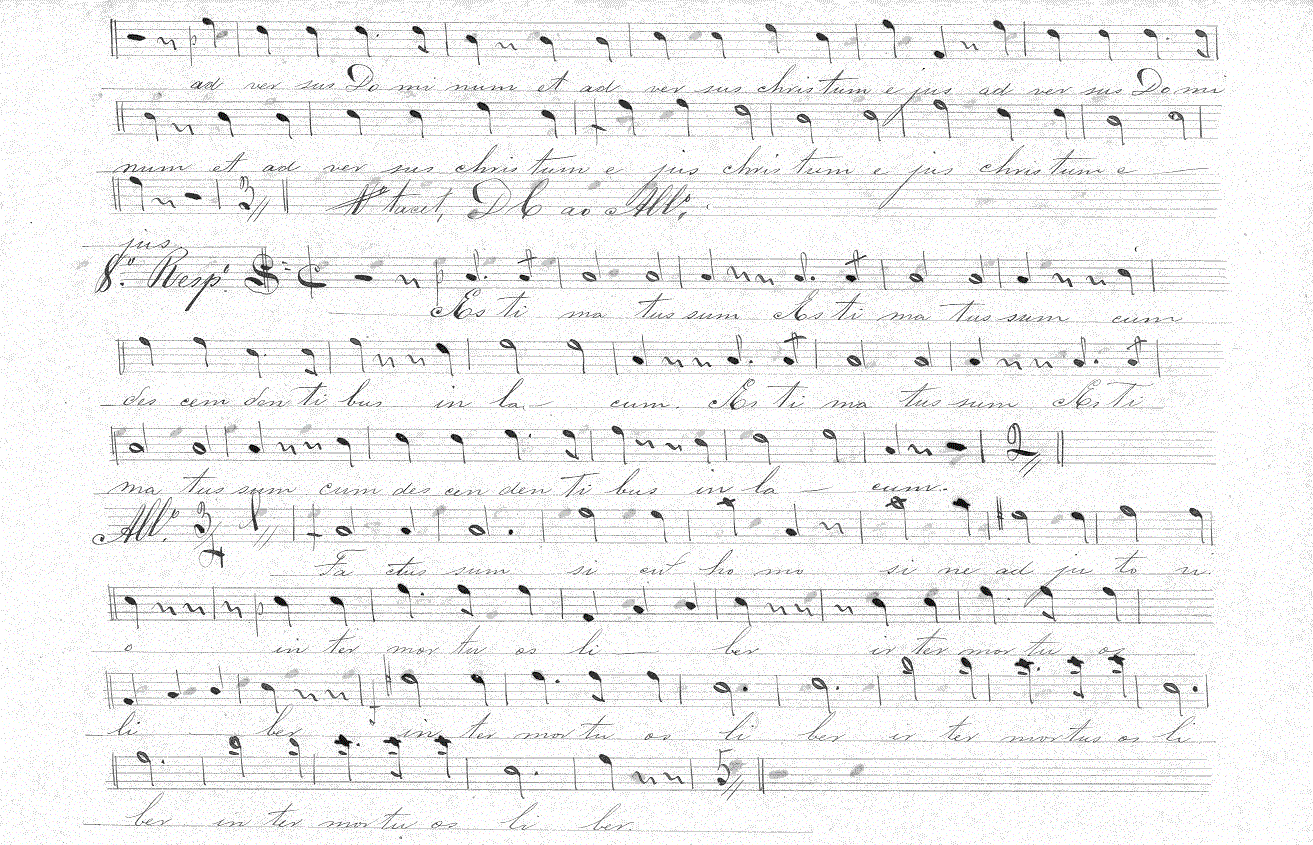 ad ver sus Do mi num et ad ver sus chris tum e jus ad ver sus Do mi
num et ad ver sus chris tum e jus chris tum e jus chris tum e
3 tacet, DC ao All.º
jus.
8.º Resp.º C
Æs ti ma tus sum Æs ti ma tus sum cum
des cem den ti bus in la cum. Æs ti ma tus sum Æs ti
2
ma tus sum cum des cen den ti bus in la cum.
All.º 3/4
Fa ctus sum si cut ho mo si ne ad ju to ri
o in ter mor tu os li ber in ter mor tu os
li ber in ter mor tu os li ber in ter mor tus os li
5
ber in ter mor tu os li ber.